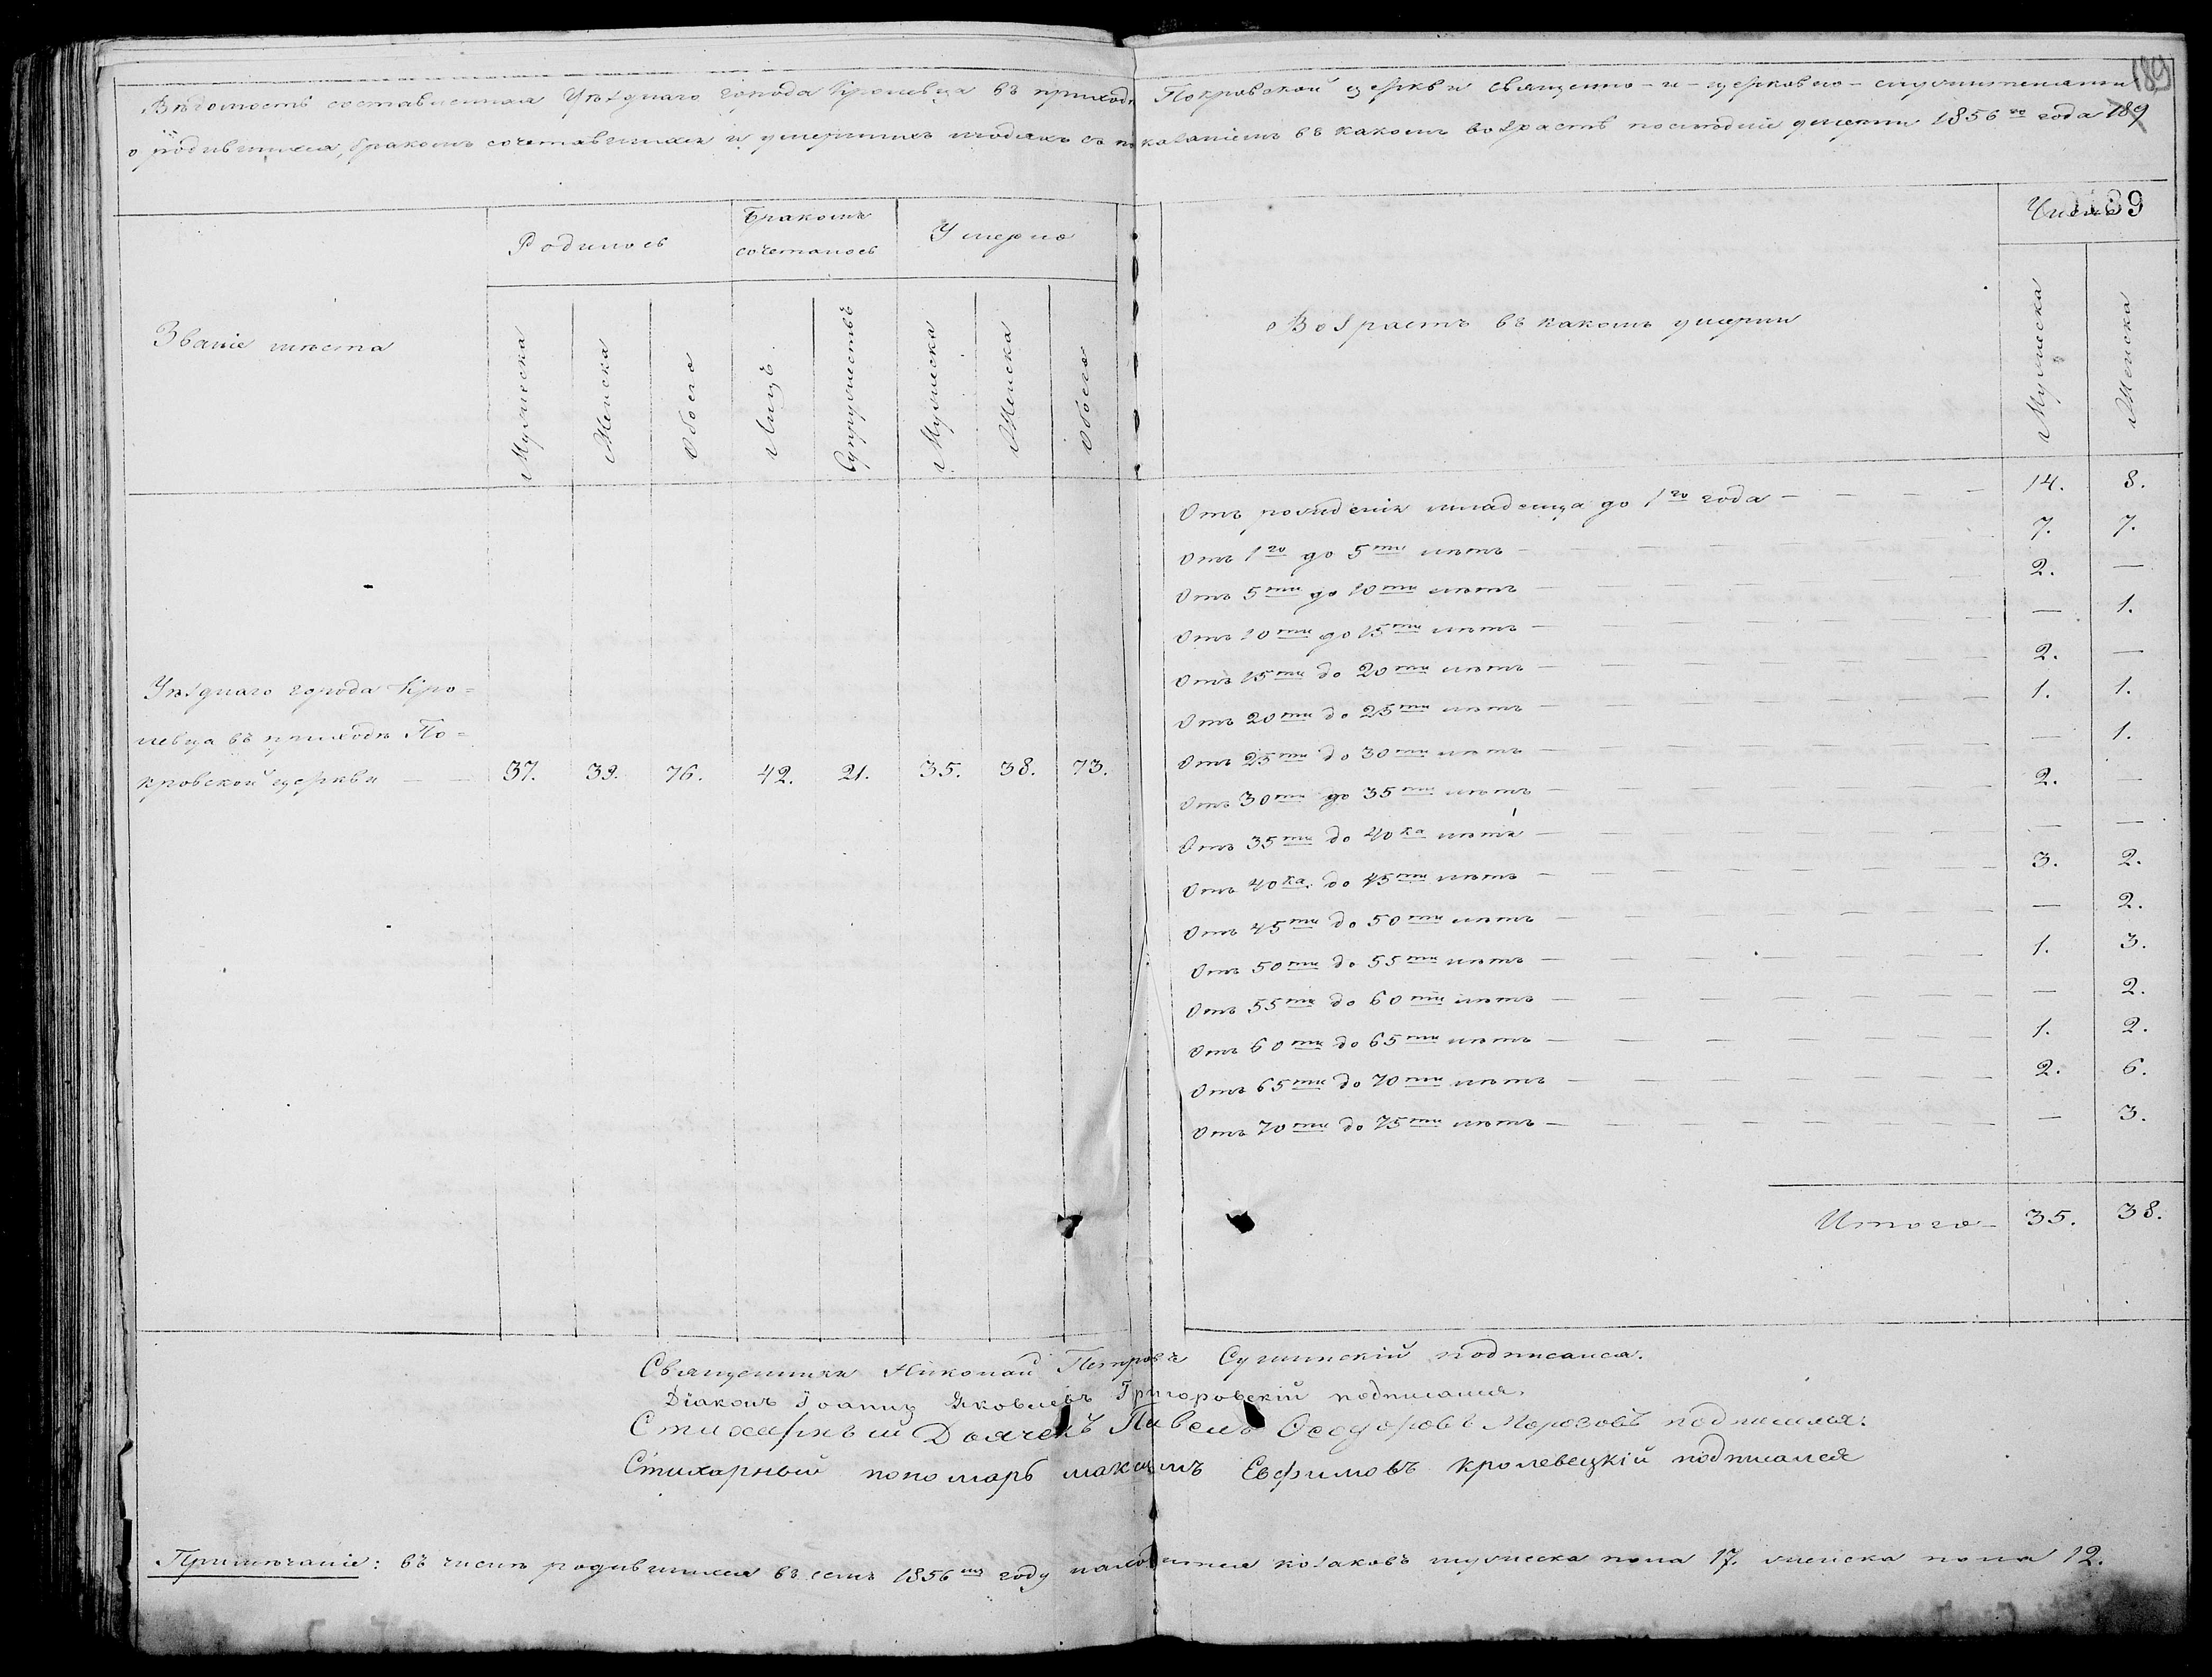 189
Вѣдомость составленная Уѣзднаго города Кролевца въ приходѣ Покровской церкви священно-и-церковно-служителями
о родившихся, бракомъ сочетавшихся и умершихъ людяхъ съ показаніемъ въ какомъ возрастѣ послѣдніе умерли 1856го года 189
Званіе мѣста
Родилось
Бракомъ сочеталось
Умерло
Возрастъ въ какомъ умерли
Число
189
Мужеска
Женска
Обоего
Лицъ
Супружествъ
Мужеска
Женска
Обоего
Мужеска
Женска
Уѣзднаго города Кро=
левца въ приходѣ По=
кровской церкви — — 37. 39. 76. 42. 21. 35. 38. 73.
Отъ рожденія младенца до 1го года — 14. 8.
Отъ 1го до 5ти лѣтъ — 7. 7.
Отъ 5ти до 10ти лѣтъ — 2. —
Отъ 10ти до 15ти лѣтъ — — 1.
Отъ 15ти до 20ти лѣтъ — 2. —
Отъ 20ти до 25ти лѣтъ — 1. 1.
Отъ 25ти до 30ти лѣтъ — — 1.
Отъ 30ти до 35ти лѣтъ — 2. —
Отъ 35ти до 40ка лѣтъ — — —
Отъ 40ка до 45ти лѣтъ — 3. 2.
Отъ 45ти до 50ти лѣтъ — — 2.
Отъ 50ти до 55ти лѣтъ — 1. 3.
Отъ 55ти до 60ти лѣтъ — — 2.
Отъ 60ти до 65ти лѣтъ — 1. 2.
Отъ 65ти до 70ти лѣтъ — 2. 6.
Отъ 70ти до 75ти лѣтъ — — 3.
Итого — 35. 38.
Священникъ Николай Петровъ подписался.
Діаконъ Іоаннъ Яковлевъ Григоровскій подписался.
Стихарный Дьячекъ Павелъ Ѳеодоровъ Морозовъ подписался.
Стихарный пономарь Максимъ Евфимовъ Кролевецкій подписался
Примѣчаніе: въ числѣ родившихся въ семъ 1856мъ году находится козаковъ мужеска пола 17. женска пола 12.